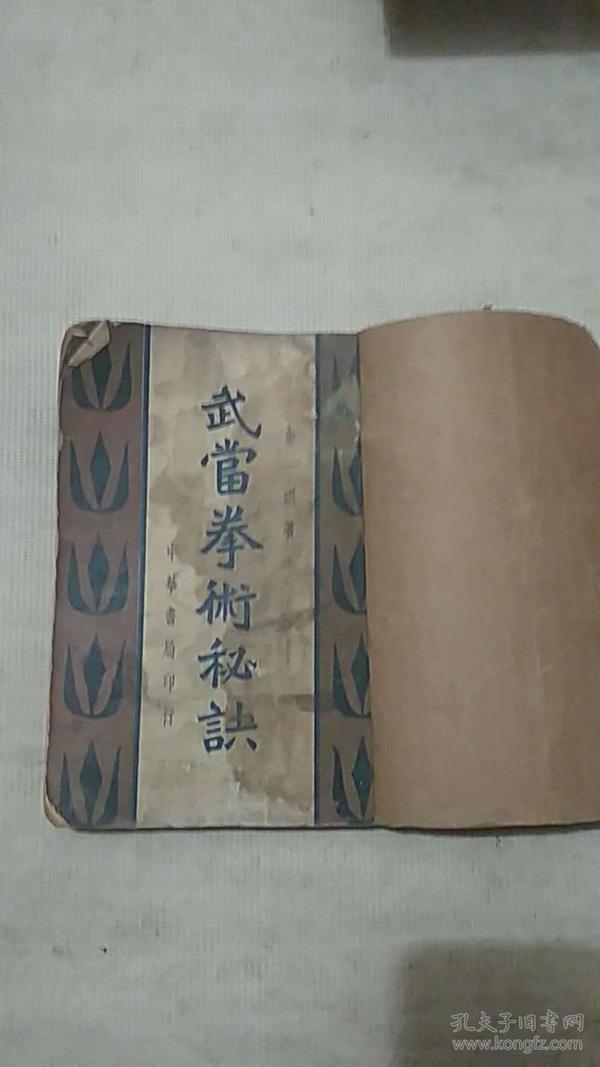 一明著
武當拳術秘訣
中華書局印行
孔夫子旧书网
www.kongfz.com